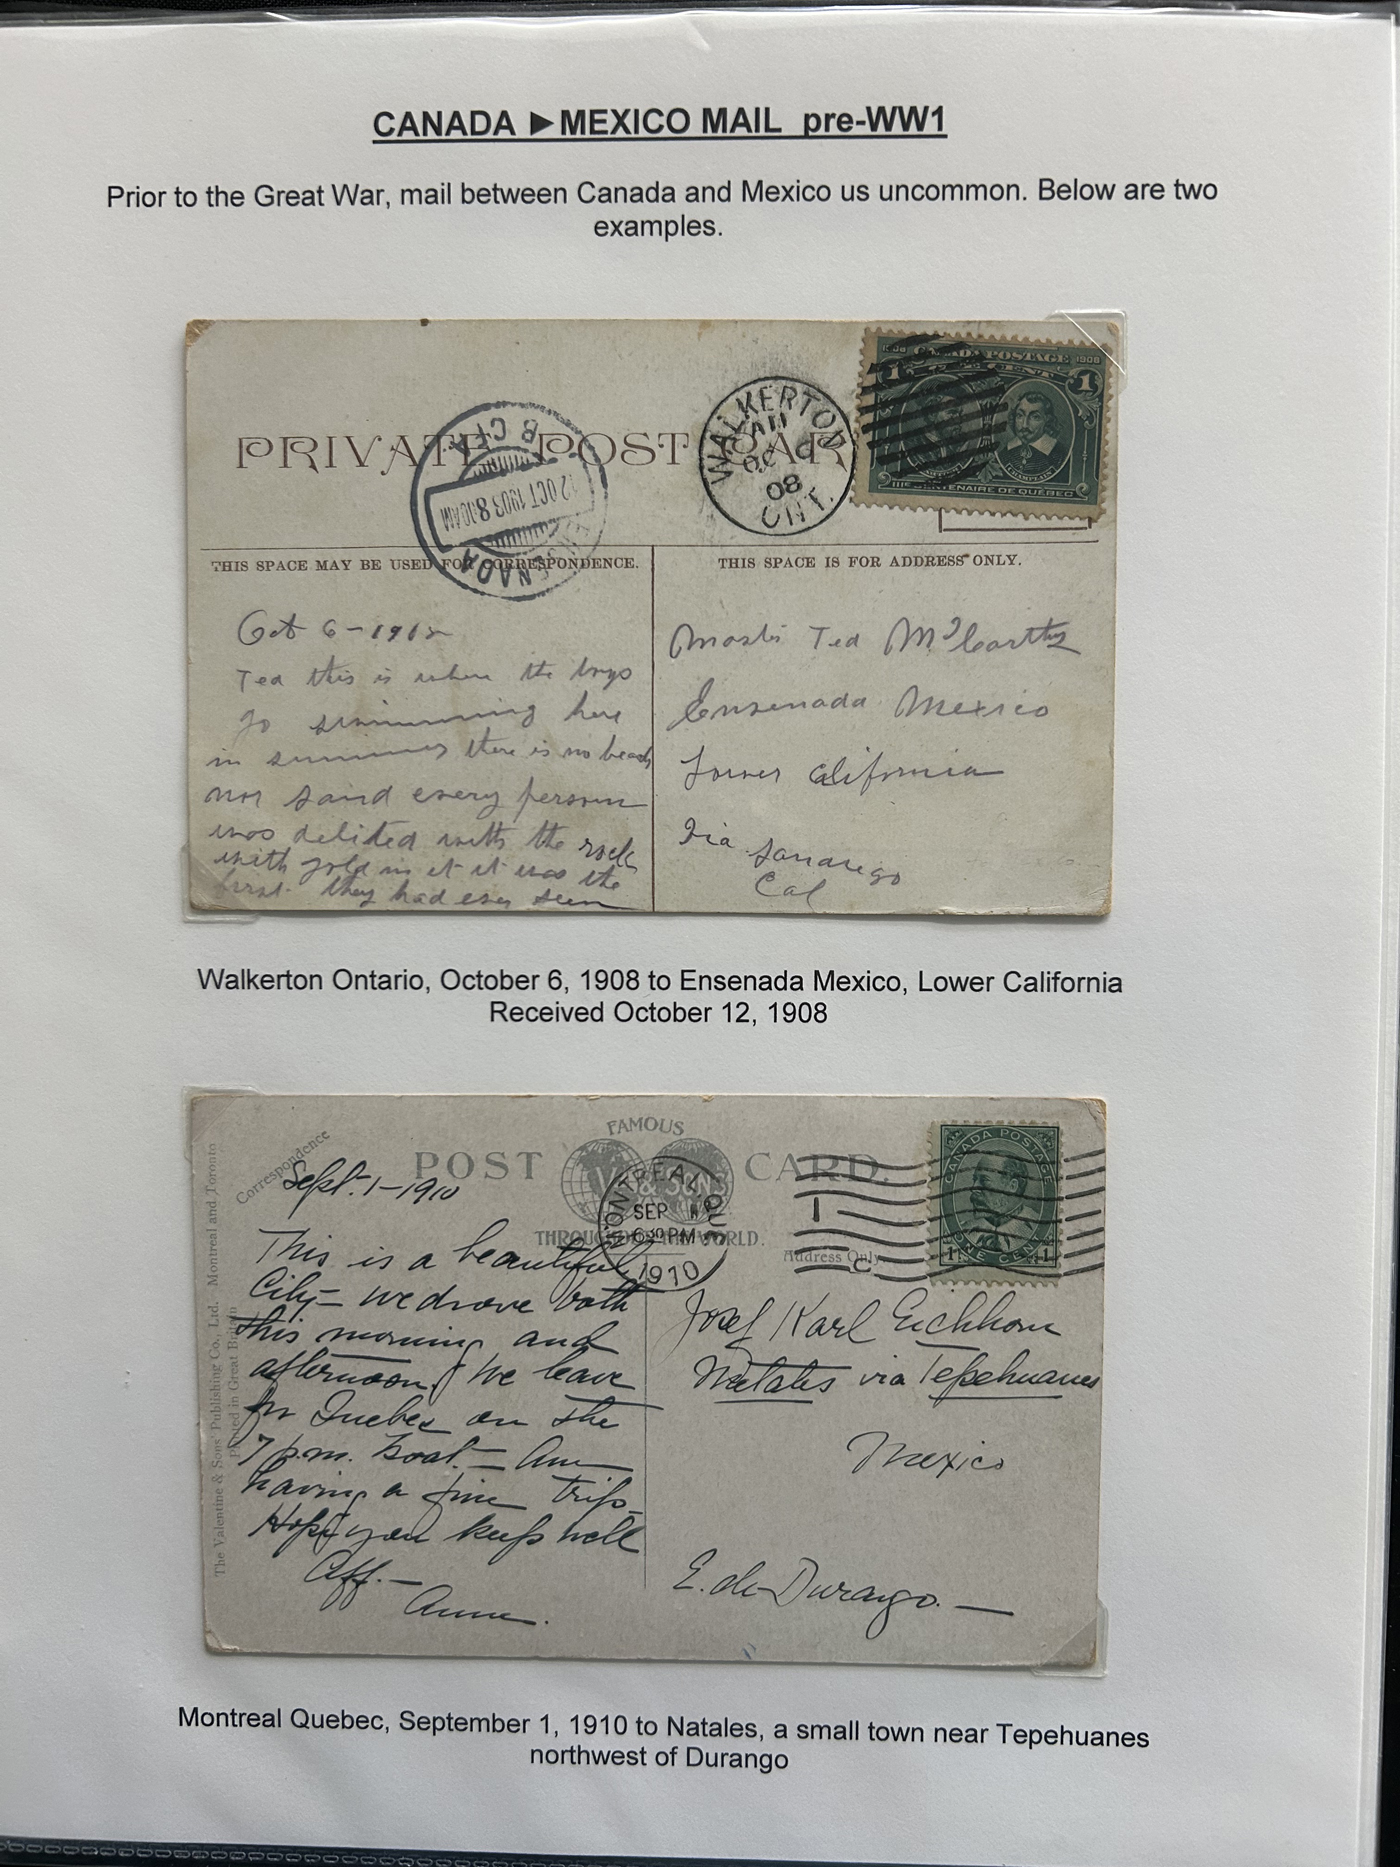 CANADA ►MEXICO MAIL pre-WW1
Prior to the Great War, mail between Canada and Mexico us uncommon. Below are two
examples.
PRIVATE POST CAR
WALKERTON
AM
OC 6
08
ONT.
ENSENADA
B CFA
12 OCT 1908 8:10AM
1908 CANADA POSTAGE 1908
1 ONE CENT 1
CHAMPLAIN
IIIE CENTENAIRE DE QUÉBEC
THIS SPACE MAY BE USED FOR CORRESPONDENCE.
THIS SPACE IS FOR ADDRESS ONLY.
Oct 6-190
Ted this is where the boys
go swimmming here
in summer there is no beach
nor sand every person
was delited with the rock
with gold in it it was the
first they had ever seen
Ted McCarthy
Ensenada Mexico
Lower California
Via Sandiego
Cal
Walkerton Ontario, October 6, 1908 to Ensenada Mexico, Lower California
Received October 12, 1908
Correspondence
POST CARD.
FAMOUS
V & SONS
THROUGHOUT THE WORLD.
Address Only
MONTREAL QUE
SEP 1
6 30 PM
1910
1
C
CANADA POSTAGE
1 ONE CENT 1
The Valentine & Sons' Publishing Co., Ltd. Montreal and Toronto
Printed in Great Britain
Sept. 1-1910
This is a beautiful
City- We drove both
this morning and
afternoon. We leave
for Quebec on the
7 p.m. boat- Am
having a fine trip-
Hope you keep well
Aff.-
Anne.
Josef Karl Eichhorn
Natales via Tepehuanes
Mexico
E. de Durango.-
Montreal Quebec, September 1, 1910 to Natales, a small town near Tepehuanes
northwest of Durango